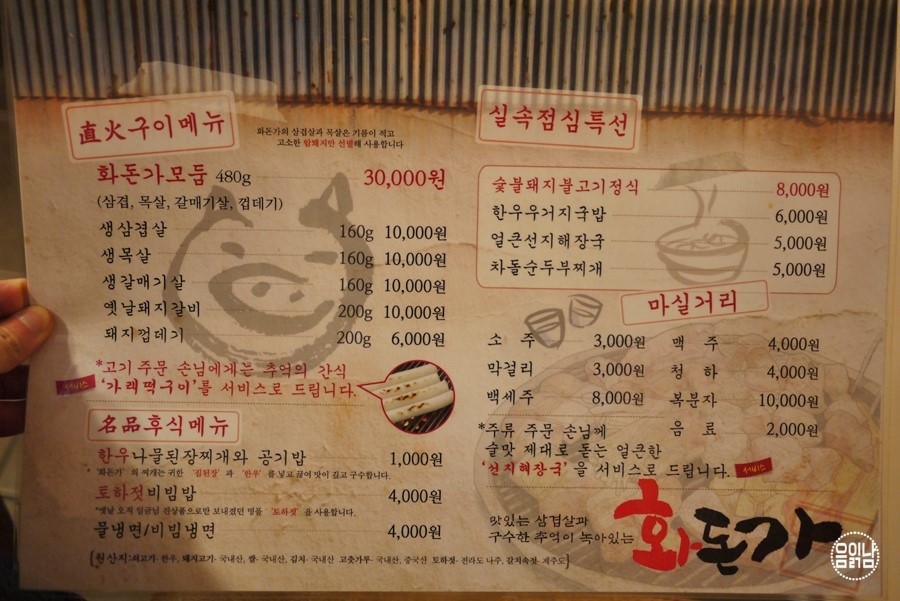 直火구이메뉴
화돈가의 삼겹살과 목살은 기름이 적고
고소한 암돼지만 선별해 사용합니다
화돈가모둠 480g 30,000원
(삼겹, 목살, 갈매기살, 껍데기)
생삼겹살 160g 10,000원
생목살 160g 10,000원
생갈매기살 160g 10,000원
옛날돼지갈비 200g 10,000원
돼지껍데기 200g 6,000원
*고기 주문 손님에게는 추억의 간식
서비스 '가래떡구이'를 서비스로 드립니다.
名品후식메뉴
한우나물된장찌개와 공기밥 1,000원
*'화돈가'의 찌개는 귀한 '집된장'과 '한우'를 넣고 끓여 맛이 깊고 구수합니다.
토하젓비빔밥 4,000원
*옛날 오직 임금님 진상품으로만 보내졌던 명물 '토하젓'을 사용합니다.
물냉면/비빔냉면 4,000원
[원산지:쇠고기- 한우, 돼지고기- 국내산, 쌀- 국내산, 김치- 국내산 고춧가루- 국내산, 중국산 토하젓- 전라도 나주, 갈치속젓- 제주도]
실속점심특선
숯불돼지불고기정식 8,000원
한우우거지국밥 6,000원
얼큰선지해장국 5,000원
차돌순두부찌개 5,000원
마실거리
소 주 3,000원 맥 주 4,000원
막걸리 3,000원 청 하 4,000원
백세주 8,000원 복분자 10,000원
음 료 2,000원
*주류 주문 손님께
술맛 제대로 돋는 얼큰한
'선지해장국'을 서비스로 드립니다. 서비스
맛있는 삼겹살과
구수한 추억이 녹아있는
화돈가